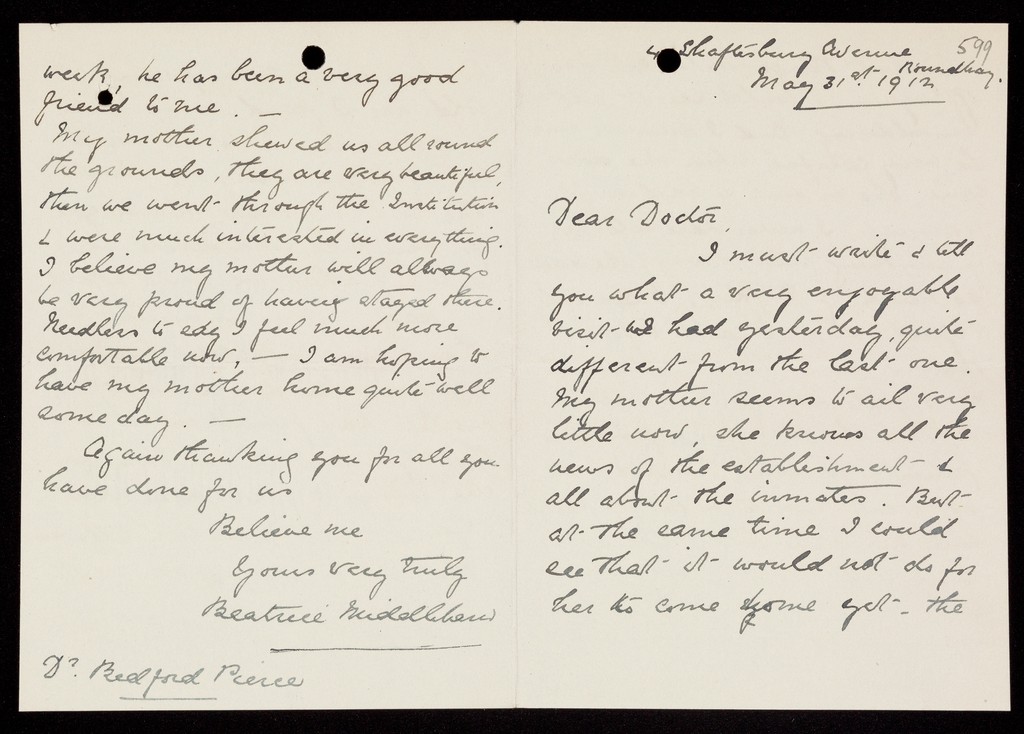 4 Shaftesbury Avenue
Roundhay.
599
May 31st. 1912
Dear Doctor,
I must write & tell
you what a very enjoyable
visit I had yesterday, quite
different from the last one.
My mother seems to ail very
little now, she knows all the
news of the establishment &
all about the inmates. But
at the same time I could
see that it would not do for
her to come home yet. The
week, he has been a very good
friend to me. —
My mother shewed us all round
the grounds, they are very beautiful,
then we went through the Institution
& were much interested in everything.
I believe my mother will always
be very proud of having stayed there.
Needless to say I feel much more
comfortable now. — I am hoping to
have my mother home quite well
some day. —
Again thanking you for all you
have done for us
Believe me
Yours very truly
Beatrice
Dr. Bedford Pierce